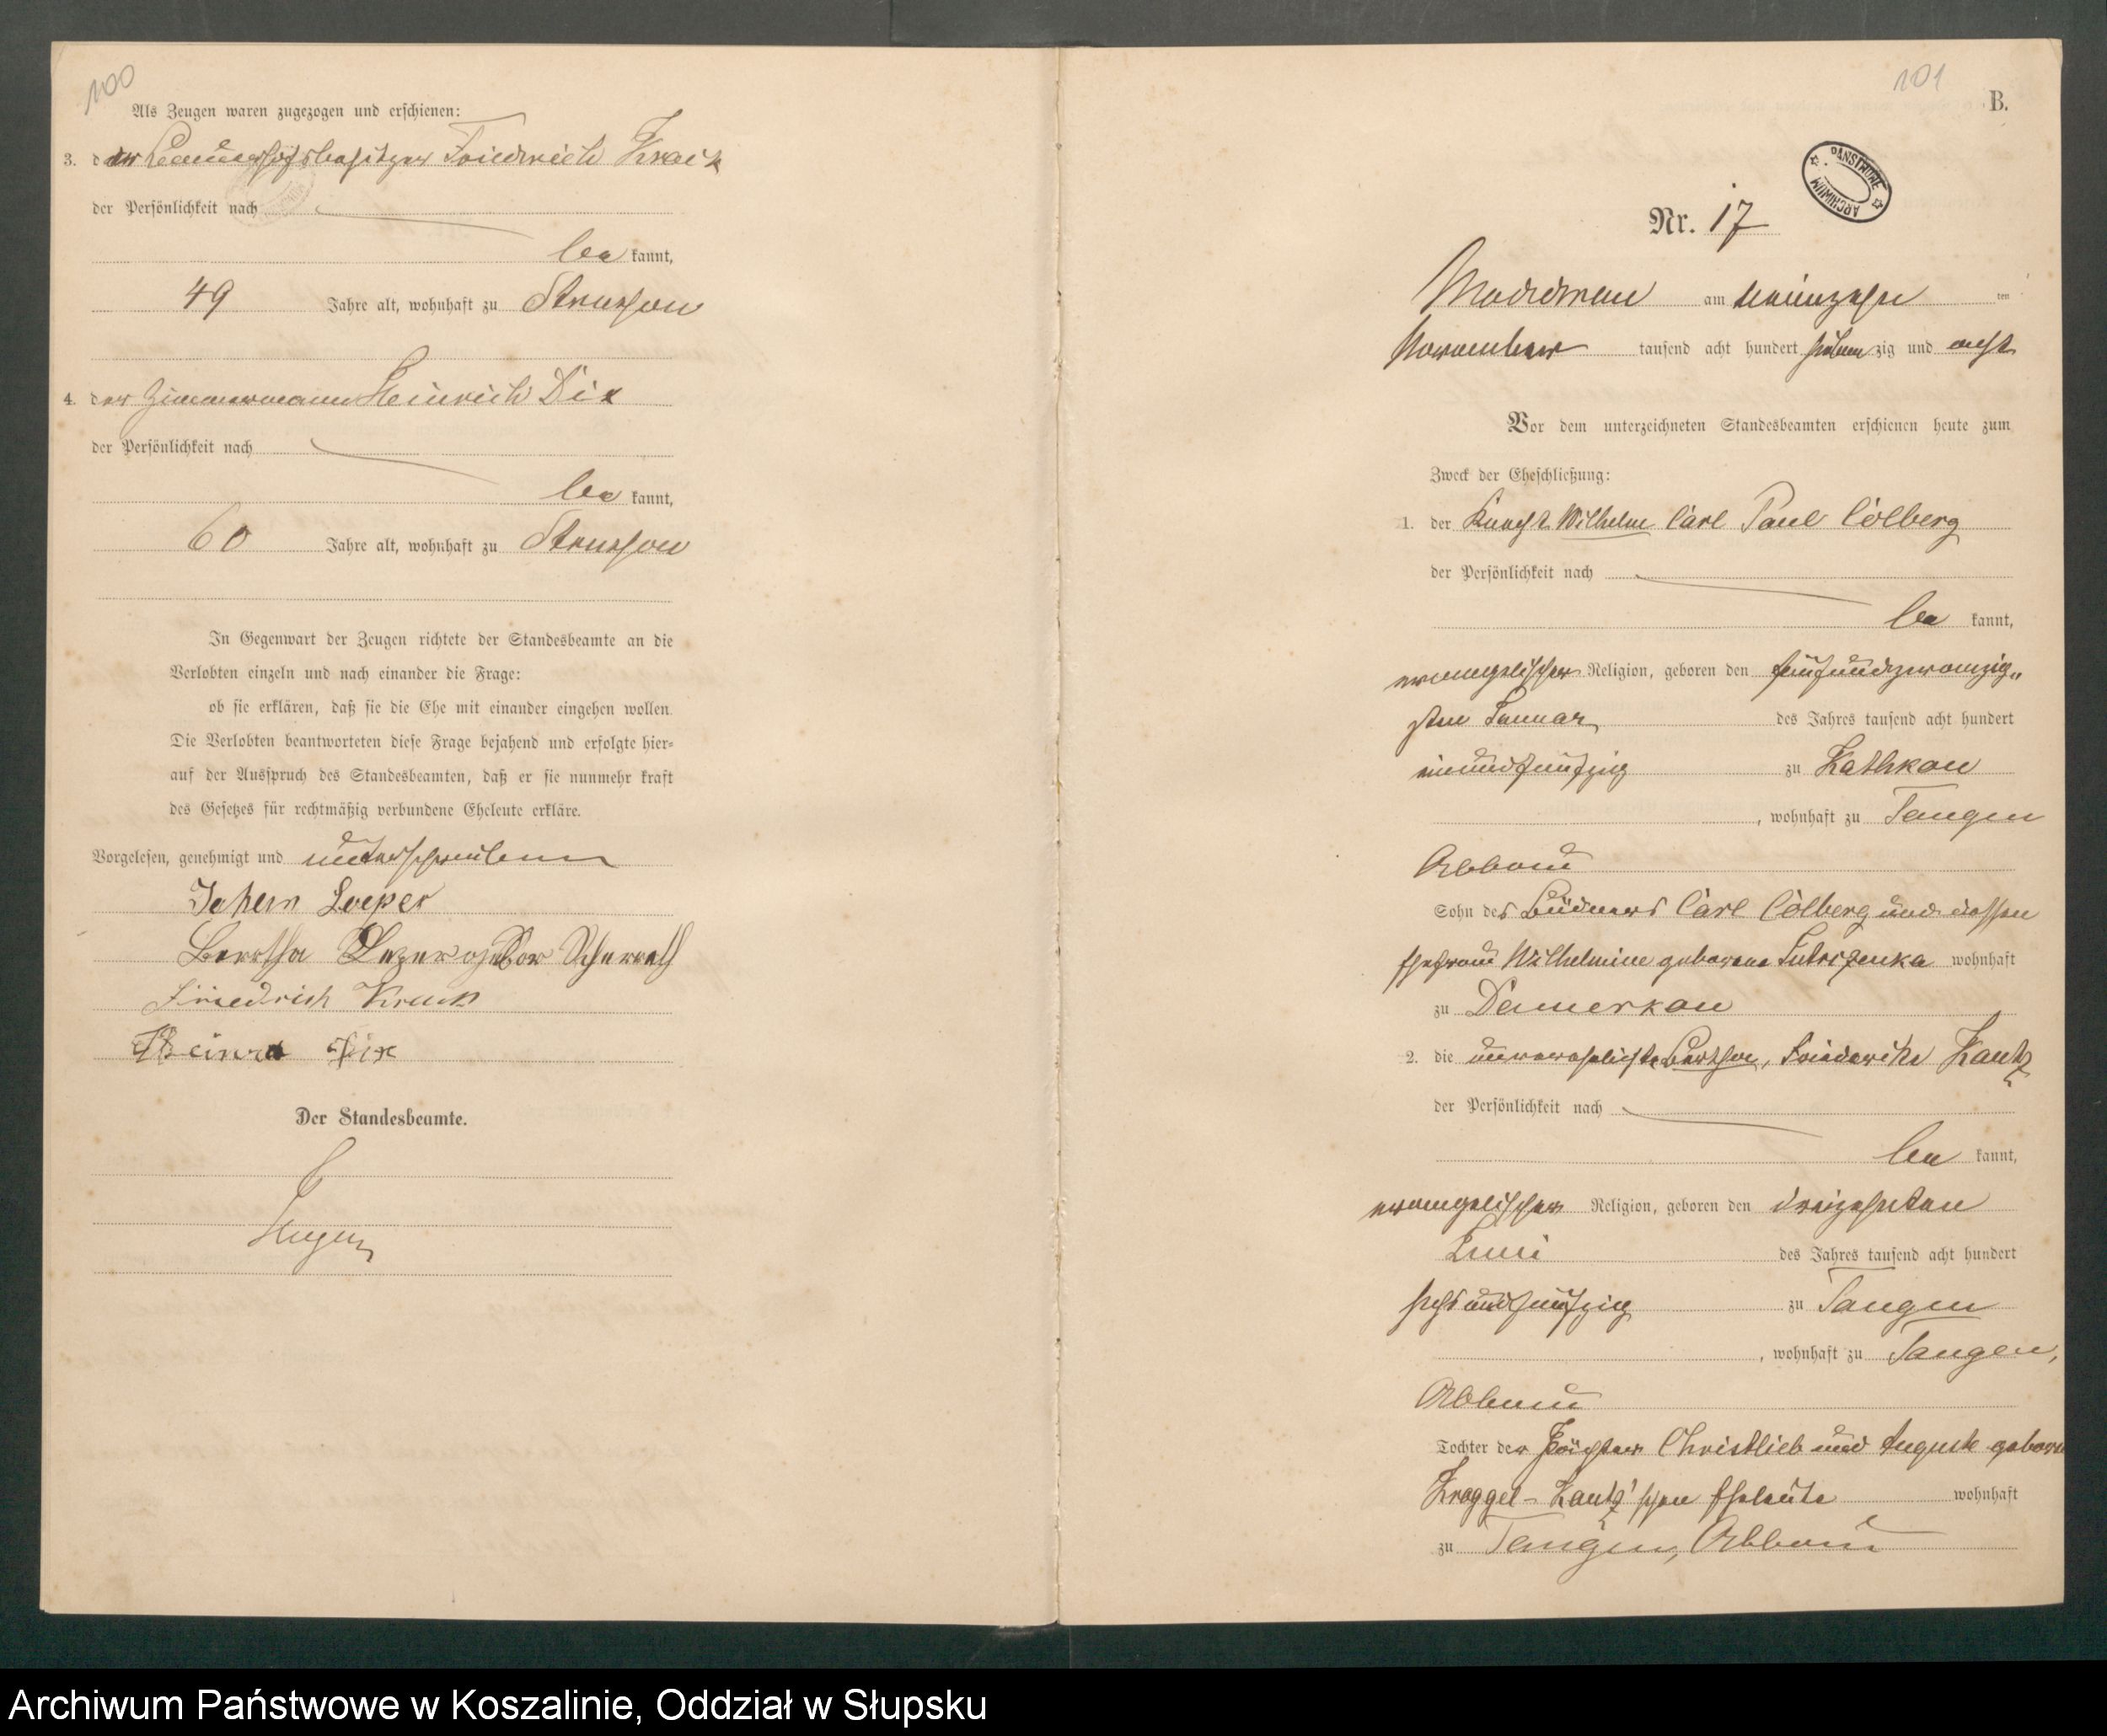 100
Als Zeugen waren zugezogen und erschienen:
3. der Friedrich Krack
der Persönlichkeit nach
be kannt,
49 Jahre alt, wohnhaft zu Strussow
4. der Zimmermann Heinrich Dix
der Persönlichkeit nach
be kannt,
60 Jahre alt, wohnhaft zu Strussow
In Gegenwart der Zeugen richtete der Standesbeamte an die
Verlobten einzeln und nach einander die Frage:
ob sie erklären, daß sie die Ehe mit einander eingehen wollen.
Die Verlobten beantworteten diese Frage bejahend und erfolgte hier-
auf der Ausspruch des Standesbeamten, daß er sie nunmehr kraft
des Gesetzes für rechtmäßig verbundene Eheleute erkläre.
Vorgelesen, genehmigt und unterschrieben
Loeper
Friedrich Krack
Der Standesbeamte.
101
B.
PAŃSTWOWE ARCHIWUM
Nr. 17
Moddrow am neunzehn ten
November tausend acht hundert sieben zig und acht
Vor dem unterzeichneten Standesbeamten erschienen heute zum
Zweck der Eheschließung:
1. der Knecht Wilhelm Carl Paul Cölberg
der Persönlichkeit nach
be kannt,
evangelischer Religion, geboren den fünfundzwanzig„
sten Januar des Jahres tausend acht hundert
einundfünfzig zu Kathkow
, wohnhaft zu Tangen
Abbau
Sohn des Büdners Carl Cölberg und dessen
Ehefrau Wilhelmine geborene wohnhaft
zu Damerkow
2. die unverehelichte Bertha, Friederike Kautz
der Persönlichkeit nach
be kannt,
evangelischer Religion, geboren den dreizehnten
Juni des Jahres tausend acht hundert
sechsundfünfzig zu Tangen
, wohnhaft zu Tangen,
Abbau
Tochter der Pächter Christlieb und Auguste geboren
Kroggel-Kautz'schen Eheleute wohnhaft
zu Tangen, Abbau
Archiwum Państwowe w Koszalinie, Oddział w Słupsku